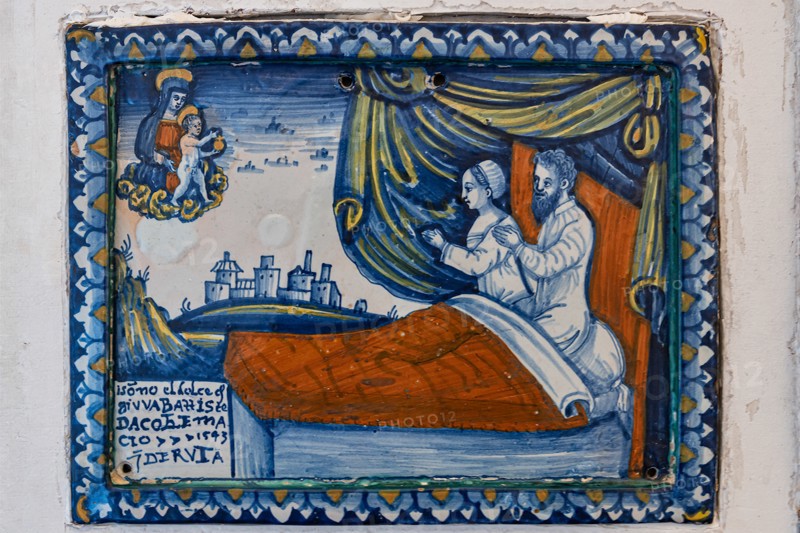 isõno el folce d
giuVA BATTISTe
DACOLEMA
CIO > > > 1543
ĩ DERVTA
PHOTO12